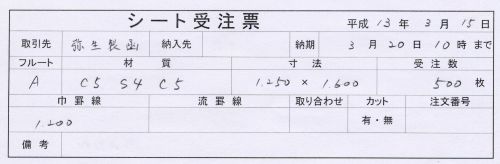 シート受注票 平成 13年 3月 15日
取引先 弥生製函 納入先 納期 3月 20日 10時まで
フルート 材質 寸法 受注数
A C5 S4 C5 1.250 × 1.600 500枚
巾罫線 流罫線 取り合わせ カット 注文番号
1.200 有・無
備考